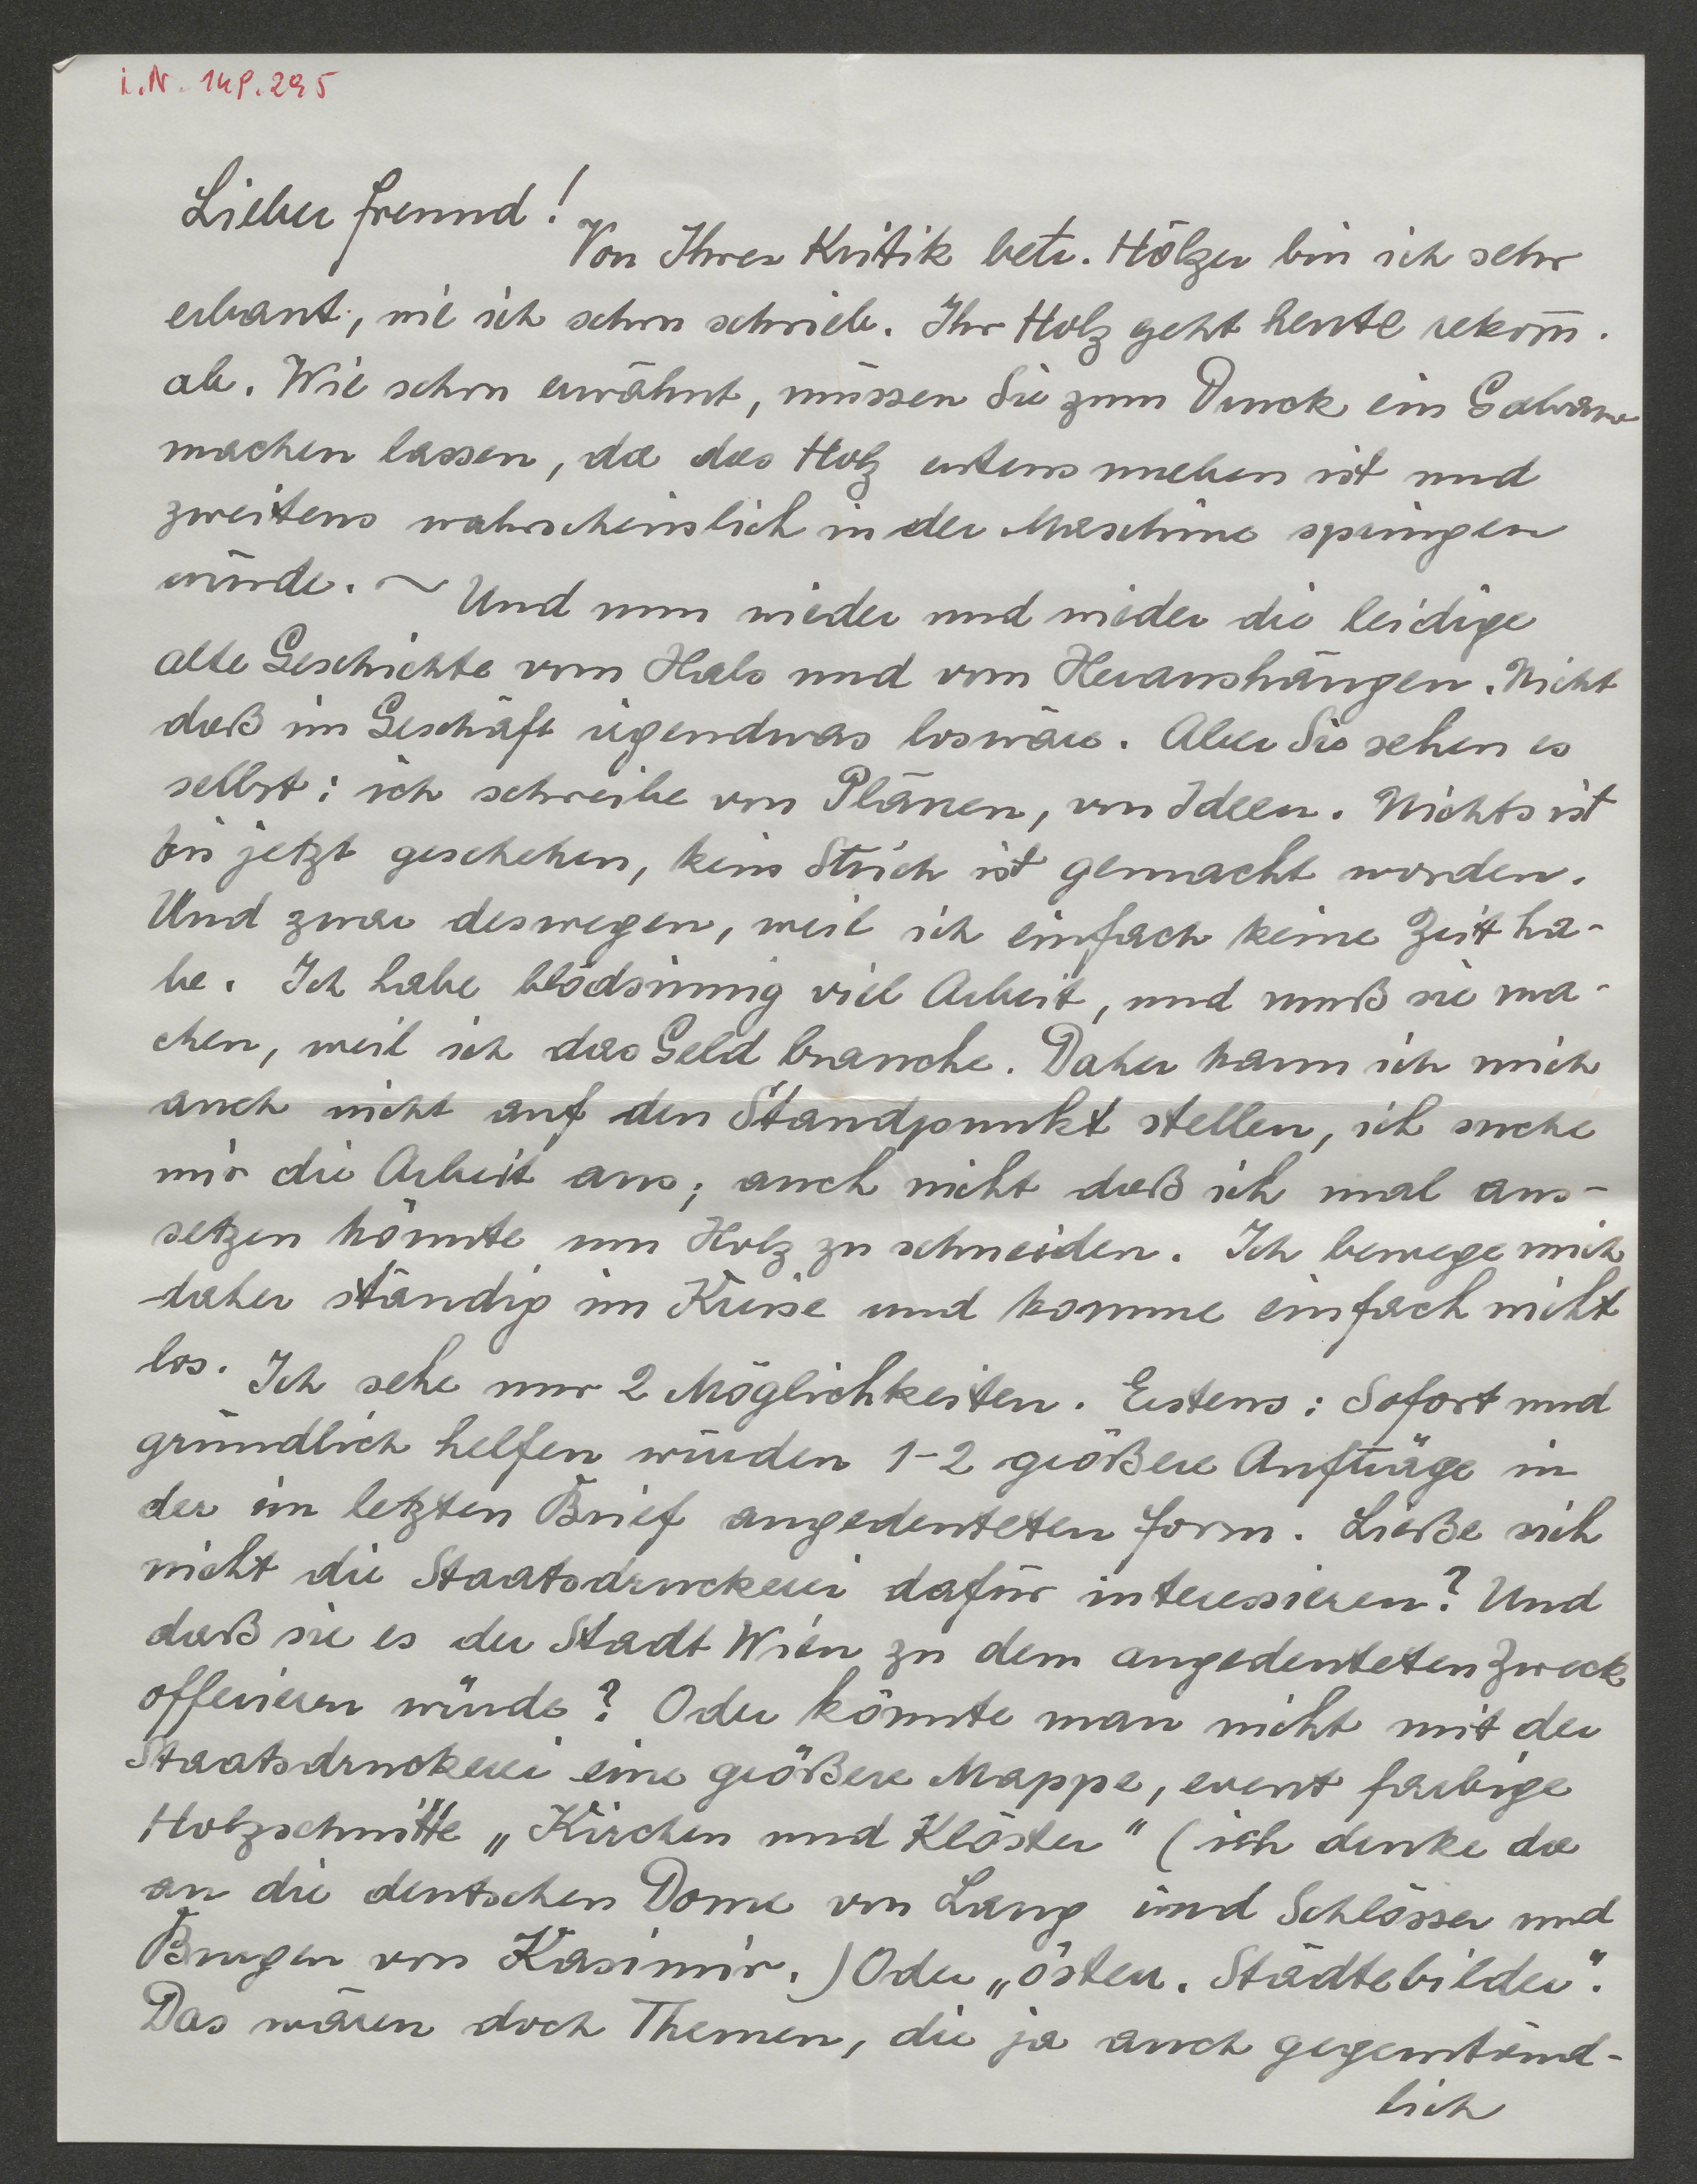 i.N. 148.295
Lieber Freund!
Von Ihrer Kritik betr. Hölzer bin ich sehr
erbaut, wie ich schon schrieb. Ihr Holz geht heute rekom̅.
ab. Wie schon erwähnt, müssen Sie zum Druck ein Galvano
machen lassen, da das Holz erstens uneben ist und
zweitens wahrscheinslich in der Maschine springen
würde. ~ Und nun wieder und wieder die leidige
alte Geschichte vom Hals und vom Heraushängen. Nicht
daß im Geschäft irgendwas loswäre. Aber Sie sehen es
selbst: ich schreibe von Plänen, von Ideen. Nichts ist
bis jetzt geschehen, kein Strich ist gemacht worden.
Und zwar deswegen, weil ich einfach keine Zeit ha-
be. Ich habe blödsinnig viel Arbeit, und muß sie ma-
chen, weil ich das Geld brauche. Daher kann ich mich
auch nicht auf den Standpunkt stellen, ich suche
mir die Arbeit aus; auch nicht daß ich mal aus-
setzen könnte um Holz zu schneiden. Ich bewege mich
daher ständig im Kreise und komme einfach nicht
los. Ich sehe nur 2 Möglichkeiten. Erstens: Sofort und
gründlich helfen würden 1-2 größere Aufträge in
der im letzten Brief angedeuteten Form. Ließe sich
nicht die Staatsdruckerei dafür interessieren? Und
daß sie es der Stadt Wien zu dem angedeuteten Zweck
offerieren würde? Oder könnte man nicht mit der
Staatsdruckerei eine größere Mappe, event farbige
Holzschnitte „Kirchen und Klöster" (ich denke da
an die deutschen Dome von Lang und Schlösser und
Burgen von Kasimir.) Oder „österr. Städtebilder".
Das wären doch Themen, die ja auch gegenständ-
lich